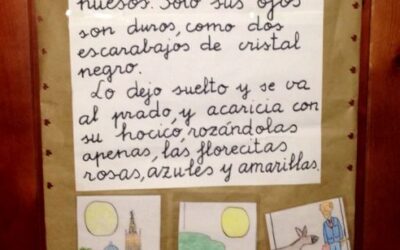 huesos. Sólo sus ojos
son duros, como dos
escarabajos de cristal
negro.
Lo dejo suelto y se va
al prado, y acaricia con
su hocico, rozándolas
apenas, las florecitas
rosas, azules y amarillas.